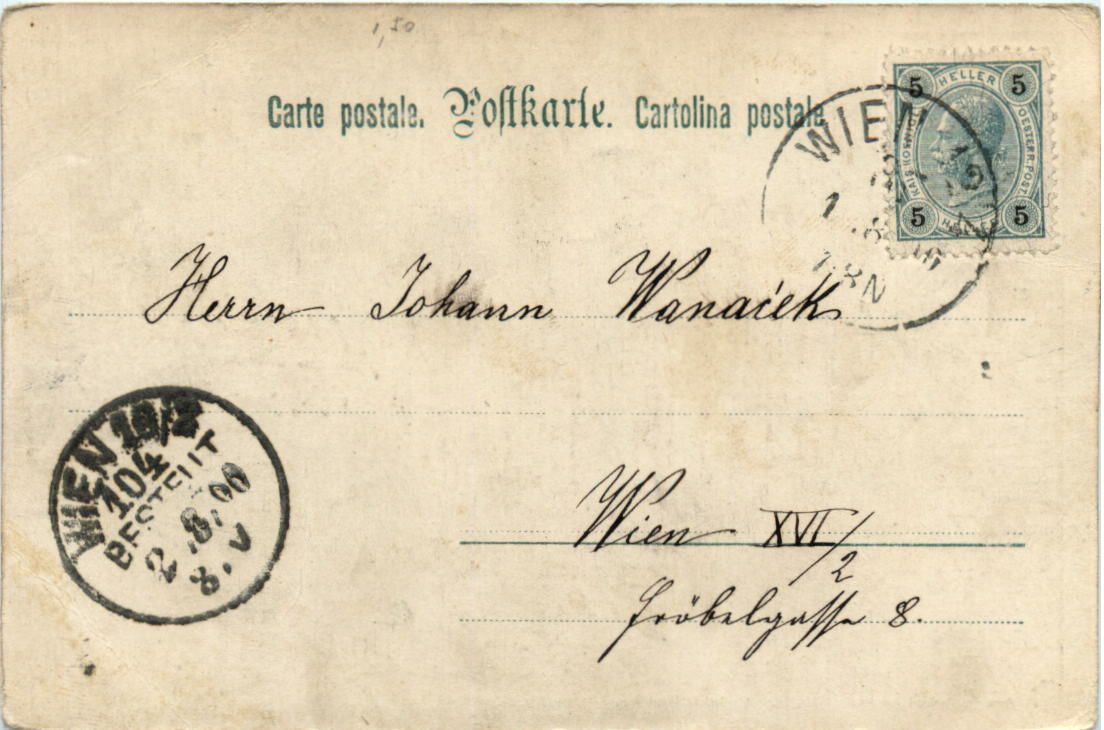 1,50
Carte postale. Postkarte. Cartolina postale
5 HELLER 5
KAIS. KÖNIGL. OESTERR. POST.
5 HELLER 5
WIEN
1 8
8 N
Herrn Johann Wanaćek
WIEN
104
BESTELLT
2.8.00
8.V
Wien XVI/2
Fröbelgasse 8.